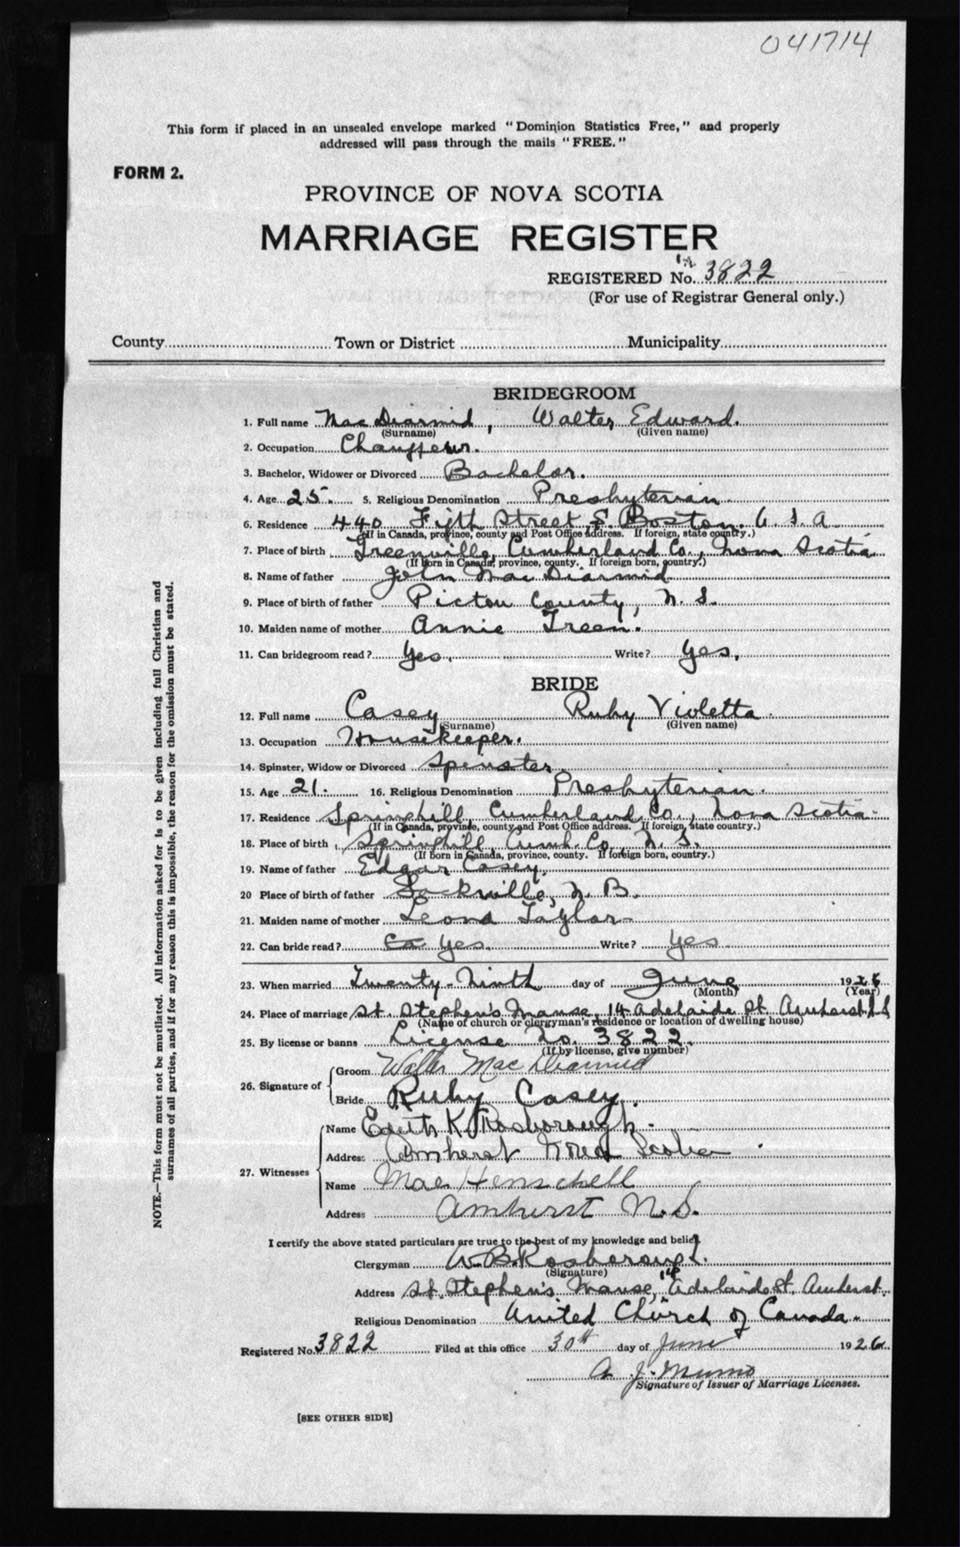 041714
This form if placed in an unsealed envelope marked "Dominion Statistics Free," and properly
addressed will pass through the mails "FREE."
FORM 2.
PROVINCE OF NOVA SCOTIA
MARRIAGE REGISTER
REGISTERED No. 3822
(For use of Registrar General only.)
County Town or District Municipality
BRIDEGROOM
1. Full name MacDiarmid, Walter Edward.
(Surname) (Given name)
2. Occupation Chauffeur.
3. Bachelor, Widower or Divorced Bachelor.
4. Age 25. 5. Religious Denomination Presbyterian
6. Residence 440 Fifth Street, S. Boston. U. S. A
(If in Canada, province, county and Post Office address. If foreign, state country.)
7. Place of birth Greenville, Cumberland Co., Nova Scotia
(If born in Canada, province, county. If foreign born, country.)
8. Name of father John MacDiarmid
9. Place of birth of father Pictou County, N. S.
10. Maiden name of mother Annie Treen.
11. Can bridegroom read? Yes. Write? Yes.
BRIDE
12. Full name Casey Ruby Violetta
(Surname) (Given name)
13. Occupation Housekeeper.
14. Spinster, Widow or Divorced Spinster.
15. Age 21. 16. Religious Denomination Presbyterian.
17. Residence Springhill, Cumberland Co., Nova Scotia.
(If in Canada, province, county and Post Office address. If foreign, state country.)
18. Place of birth Springhill, Cumb. Co. N. S.
(If born in Canada, province, county. If foreign born, country.)
19. Name of father Edgar Casey.
20 Place of birth of father Sackville, N. B.
21. Maiden name of mother Leona Taylor
22. Can bride read? Yes. Write? Yes
23. When married Twenty-Ninth day of June 1926
(Month) (Year)
24. Place of marriage St. Stephen's Manse, 14 Adelaide St. Amherst N S
(Name of church or clergyman's residence or location of dwelling house)
25. By license or banns License No. 3822.
(If by license, give number)
26. Signature of
Groom Walter MacDiarmid
Bride Ruby Casey.
27. Witnesses
Name Edith K. Rosborough.
Address Amherst Nova Scotia
Name Mae Henschell
Address Amherst N.S.
I certify the above stated particulars are true to the best of my knowledge and belief.
Clergyman W. B. Rosborough.
(Signature)
Address St. Stephen's Manse, 14 Adelaide St. Amherst.
Religious Denomination United Church of Canada.
Registered No. 3822 Filed at this office 30th day of June 1926
A. J. Munro
Signature of Issuer of Marriage Licenses.
[SEE OTHER SIDE]
NOTE.—This form must not be mutilated. All information asked for is to be given including full Christian and
surnames of all parties, and if for any reason this is impossible, the reason for the omission must be stated.